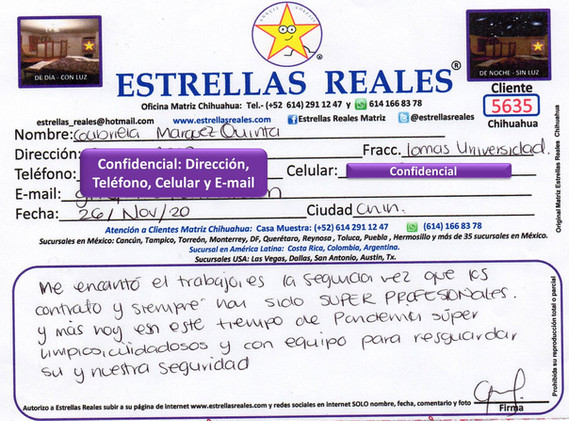 ESTRELLAS REALES®
DE DÍA - CON LUZ
DE NOCHE - SIN LUZ
Oficina Matriz Chihuahua: Tel.- (+52 614) 291 12 47 y 614 166 83 78
estrellas_reales@hotmail.com www.estrellasreales.com Estrellas Reales Matriz @estrellasreales
Cliente
5635
Chihuahua
Nombre: Gabriela Marquez Quinta
Dirección: Fracc. lomas Universidad.
Teléfono: Celular: Confidencial
Confidencial: Dirección,
Teléfono, Celular y E-mail
E-mail:
Fecha: 26/Nov/20 Ciudad Chih.
Atención a Clientes Matriz Chihuahua: Casa Muestra: (+52) 614 291 12 47 (614) 166 83 78
Sucursales en México: Cancún, Tampico, Torreón, Monterrey, DF, Querétaro, Reynosa, Toluca, Puebla, Hermosillo y más de 35 sucursales en México.
Sucursal en América Latina: Costa Rica, Colombia, Argentina.
Sucursales USA: Las Vegas, Dallas, San Antonio, Austin, Tx.
Me encantó el trabajo, es la segunda vez que los
contrato y siempre han sido SUPER PROFESIONALES.
y más hoy en este tiempo de Pandemia súper
limpios, cuidadosos y con equipo para resguardar
su y nuestra seguridad
Autorizo a Estrellas Reales subir a su página de internet www.estrellasreales.com y redes sociales en internet SOLO nombre, fecha, comentario y foto
Firma
Original Matriz Estrellas Reales Chihuahua
Prohibida su reproducción total o parcial